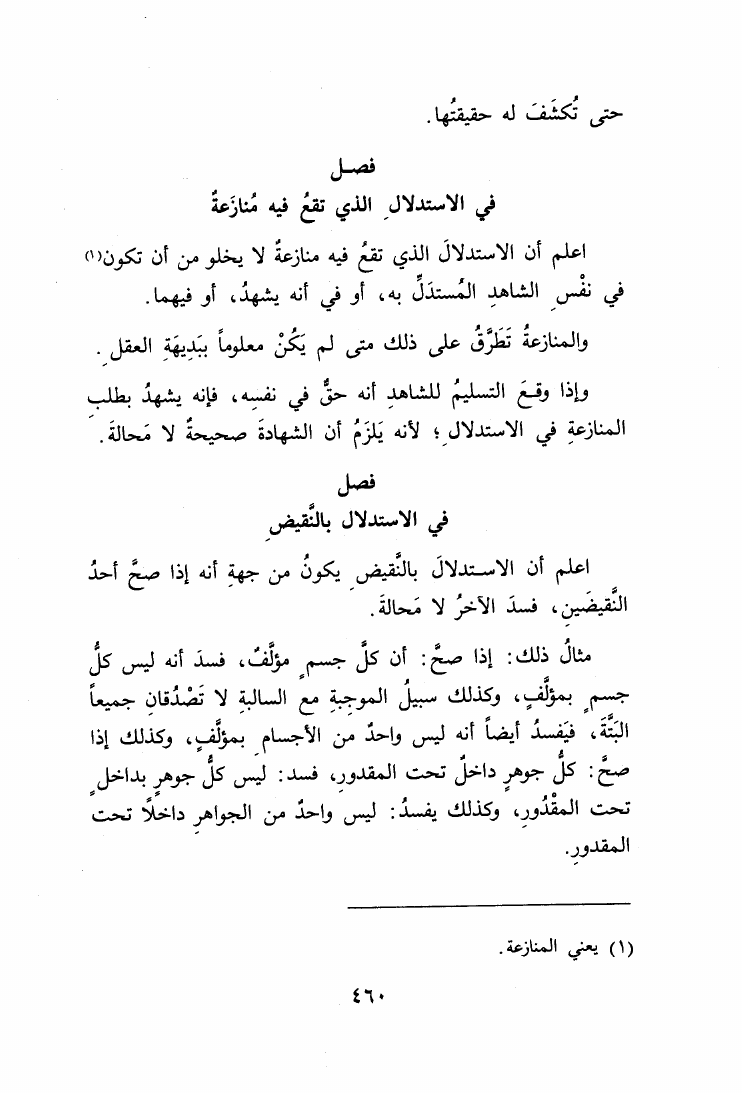 حتى تُكشَفَ له حقيقتُها.
فصـل
في الاستدلالِ الذي تقعُ فيه مُنازَعةٌ
اعلم أن الاستدلالَ الذي تقعُ فيه منازعةٌ لا يخلو من أن تكون(١)
في نفْسِ الشاهدِ المُستدَلِّ به، أو في أنه يشهدُ، أو فيهما.
والمنازعةُ تَطَرَّقُ على ذلك متى لم يَكُنْ معلوماً ببَدِيهَةِ العقلِ.
وإذا وقـعَ التسليمُ للشاهدِ أنه حقٌّ في نفسِه، فإنه يشهدُ بطلبِ
المنازعةِ في الاستدلالِ؛ لأنه يَلزَمُ أن الشهادةَ صحيحةٌ لا مَحالةَ.
فصل
في الاستدلال بالنَّقيضِ
اعلم أن الاسـتدلالَ بالنَّقيضِ يكونُ من جهةِ أنه إذا صحَّ أحدُ
النَّقيضَينِ، فسدَ الآخرُ لا مَحالةَ.
مثالُ ذلك: إذا صحَّ: أن كلَّ جسمٍ مؤلَّفٌ، فسدَ أنه ليس كلُّ
جسمٍ بمؤلَّفٍ، وكذلك سبيلُ الموجِبةِ مع السالبةِ لا تَصْدُقانِ جميعاً
البَتَّةَ، فيَفسدُ أيضاً أنه ليس واحدٌ من الأجسامِ بمؤلَّفٍ، وكذلك إذا
صحَّ: كلُّ جوهرٍ داخلٌ تحت المقدورِ، فسد: ليس كلُّ جوهرٍ بداخلٍ
تحت المقْدُورِ، وكذلك يفسدُ: ليس واحدٌ من الجواهرِ داخلًا تحت
المقدورِ.
(١) يعني المنازعة.
٤٦٠